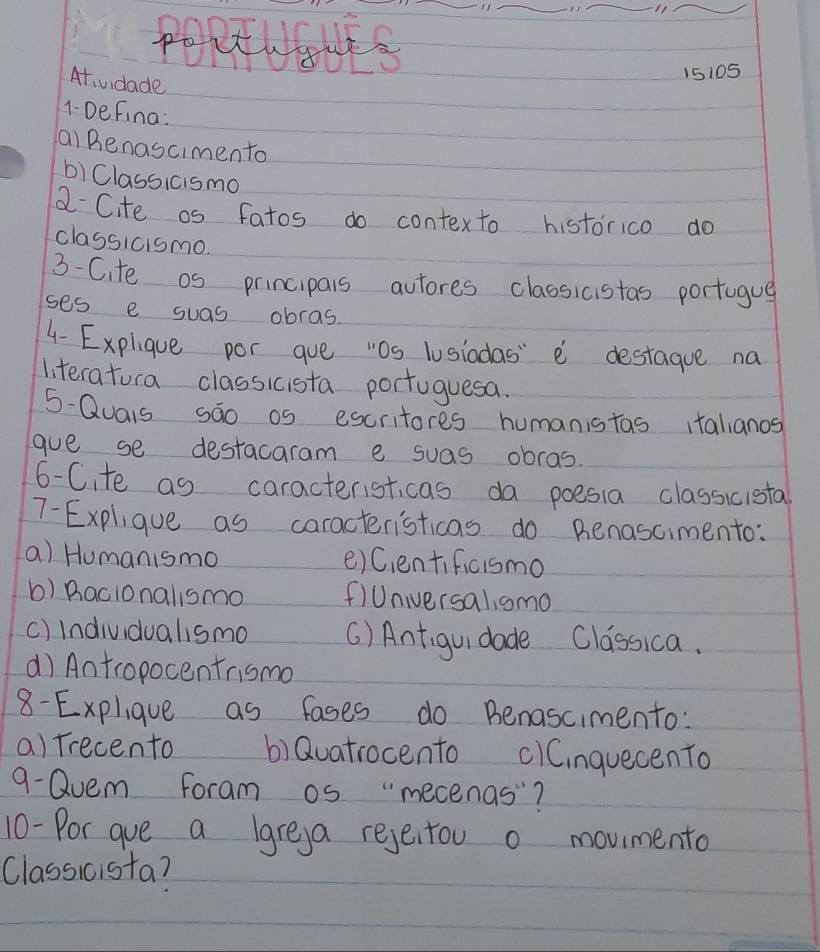 PORTUGUÊS
15/05
Atividade
1- Defina:
a) Renascimento
b) Classicismo
2- Cite os fatos do contexto histórico do
classicismo.
3- Cite os principais autores classicistas portugue
ses e suas obras.
4- Explique por que "Os lusíadas" é destaque na
literatura classicista portuguesa.
5- Quais são os escritores humanistas italianos
que se destacaram e suas obras.
6- Cite as características da poesia classicista.
7- Explique as características do Renascimento:
a) Humanismo e) Cientificismo
b) Racionalismo f) Universalismo
c) Individualismo G) Antiguidade Clássica.
d) Antropocentrismo
8- Explique as fases do Renascimento:
a) Trecento b) Quatrocento c) Cinquecento
9- Quem foram os "mecenas"?
10- Por que a Igreja rejeitou o movimento
Classicista?